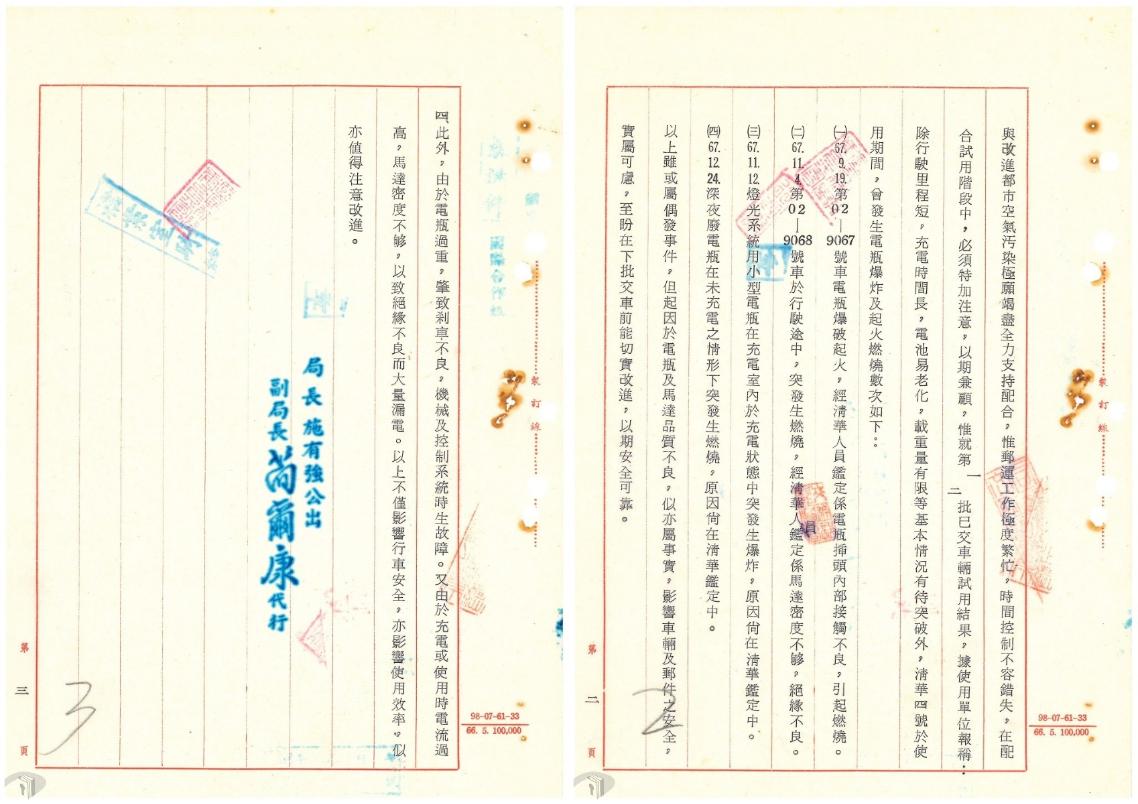 與改進都市空氣污染極願竭盡全力支持配合，惟郵運工作極度繁忙，時間控制不容錯失，在配
合試用階段中，必須特加注意，以期兼顧，惟就第一二批已交車輛試用結果，據使用單位報稱：
除行駛里程短，充電時間長，電池易老化，載重量有限等基本情況有待突破外，清華四號於使
用期間，曾發生電瓶爆炸及起火燃燒數次如下：
㈠67.9.19.第02－9067號車電瓶爆破起火，經清華人員鑑定係電瓶插頭內部接觸不良，引起燃燒。
㈡67.11.4.第02－9068號車於行駛途中，突發生燃燒，經清華人員鑑定係馬達密度不够，絕緣不良。
㈢67.11.12.燈光系統用小型電瓶在充電室內於充電狀態中突發生爆炸，原因尚在清華鑑定中。
㈣67.12.24.深夜廢電瓶在未充電之情形下突發生燃燒，原因尚在清華鑑定中。
以上雖或屬偶發事件，但起因於電瓶及馬達品質不良，似亦屬事實，影響車輛及郵件之安全，
實屬可慮，至盼在下批交車前能切實改進，以期安全可靠。
裝訂線
第二頁
2
98-07-61-33
66. 5. 100,000
四、此外，由於電瓶過重，肇致剎車不良，機械及控制系統時生故障。又由於充電或使用時電流過
高，馬達密度不够，以致絕緣不良而大量漏電。以上不僅影響行車安全，亦影響使用效率，似
亦值得注意改進。
局長 施有強公出
副局長 簡爾康代行
裝訂線
第三頁
3
98-07-61-33
66. 5. 100,000